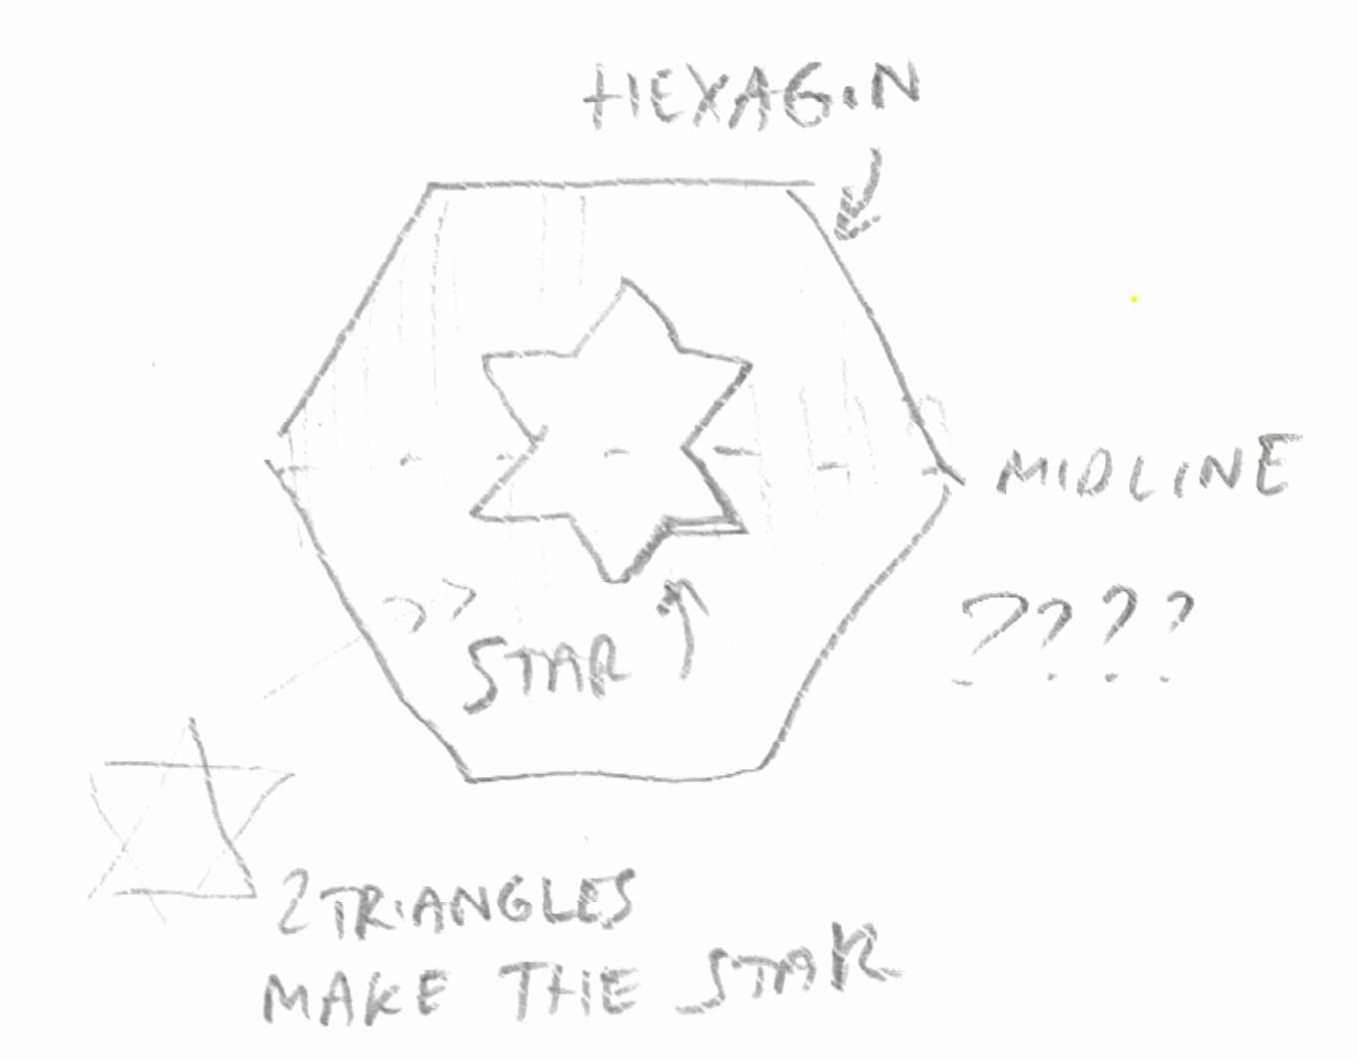 HEXAGON
MIDLINE
????
STAR
2 TRIANGLES
MAKE THE STAR